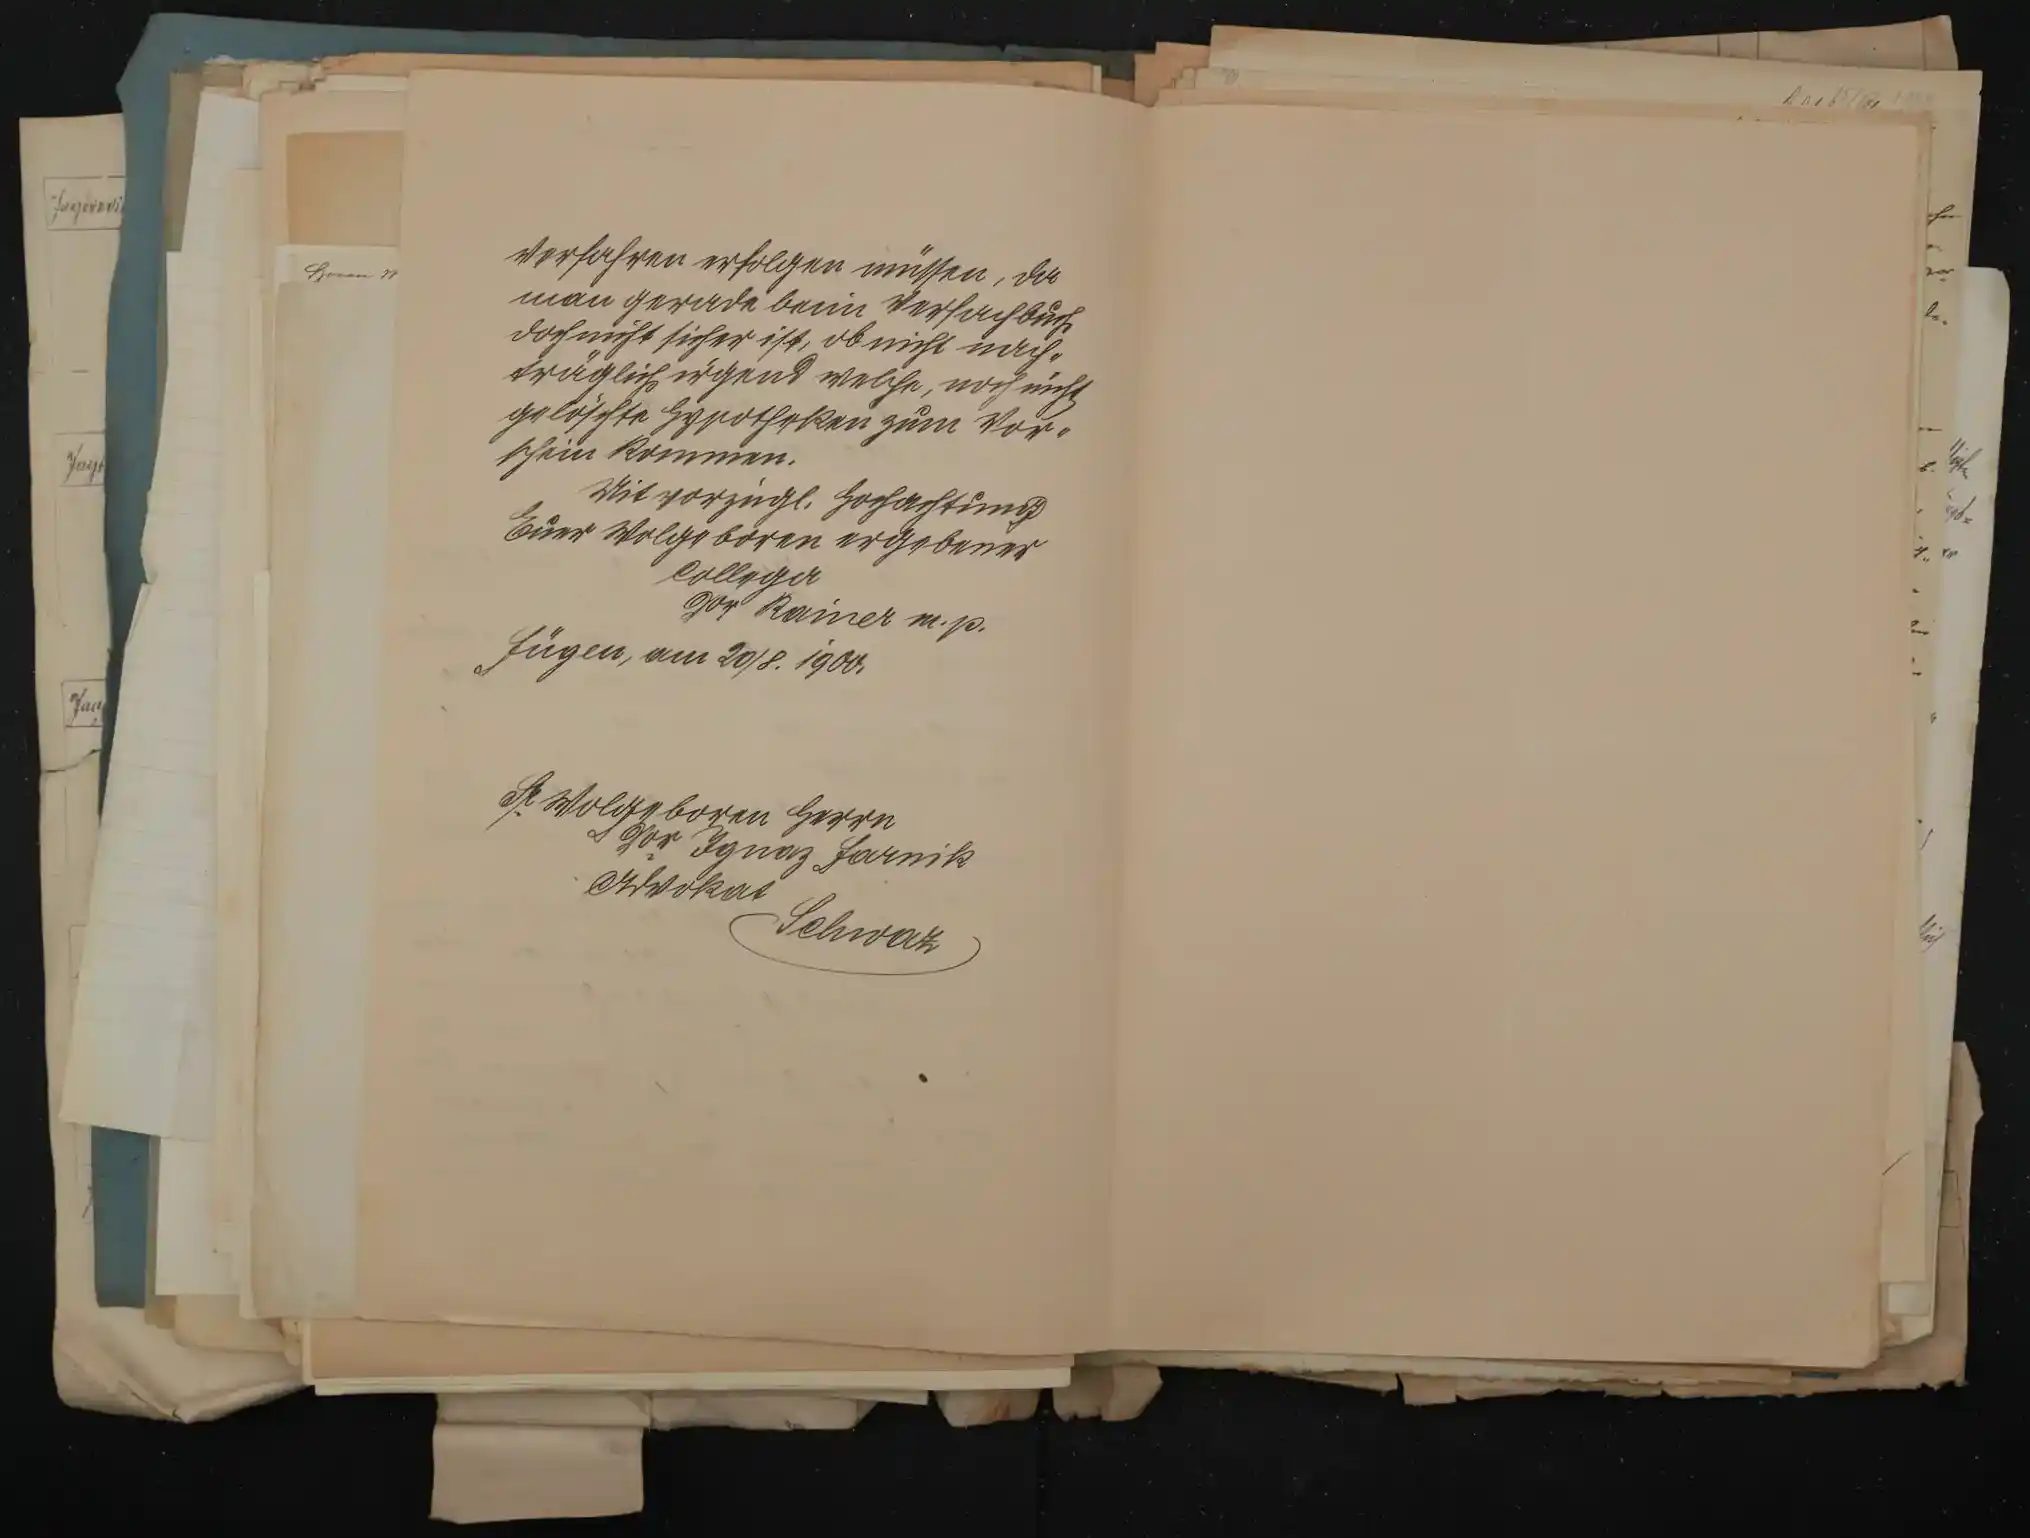 Verfahren erfolgen müssen, da
man gerade beim Verfachbuch
doch nicht sicher ist, ob nicht nach-
träglich irgend welche, noch nicht
gelöschte Hypotheken zum Vor-
schein kommen.
Mit vorzügl. Hochachtung
Euer Wolgeboren ergebener
Collega
Dor Rainer m. p.
Fügen, am 20/8. 1900.
Sr. Wolgeboren Herrn
Dor Ignaz Jarnik
Advokat
Schwaz